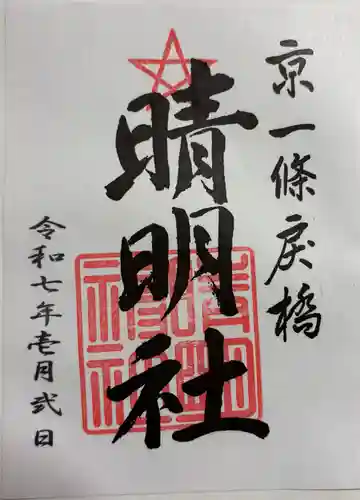 京一條戻橋
晴明社
令和七年壱月弐日
晴明神社